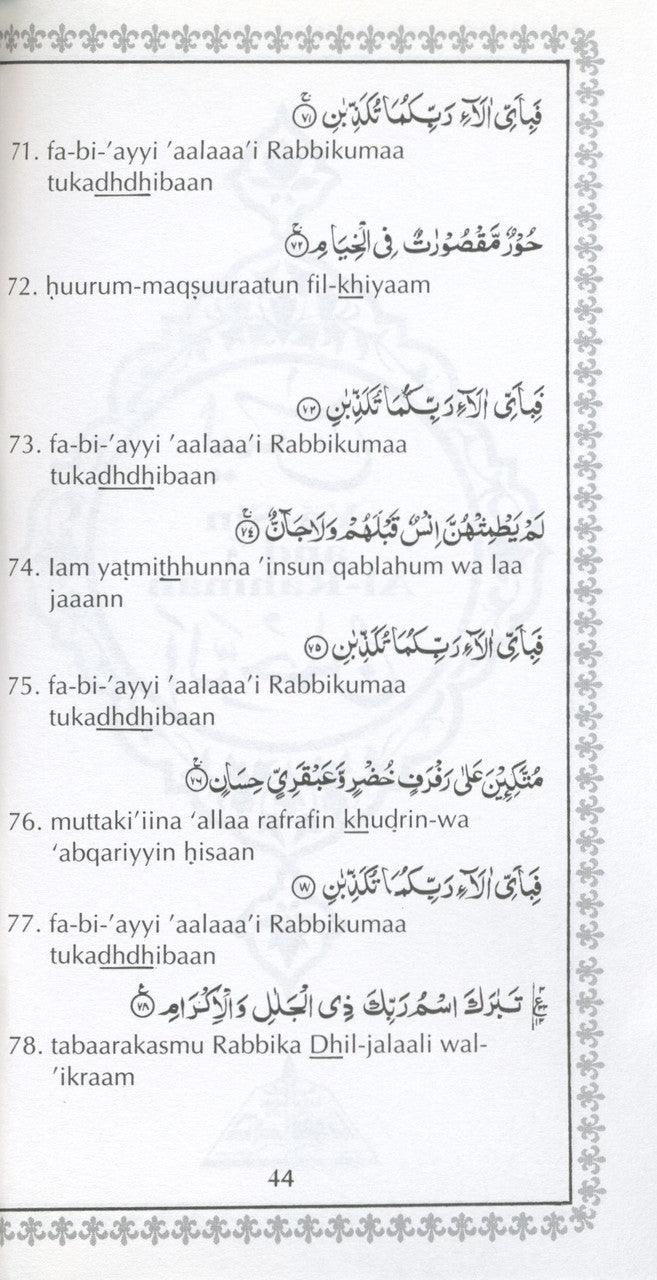 فَبِاَىِّ اٰلَآءِ رَبِّكُمَا تُكَذِّبٰنِ ۷۱
71. fa-bi-’ayyi ’aalaaa’i Rabbikumaa
tukadhdhibaan
حُوْرٌ مَّقْصُوْرٰتٌ فِى الْخِيَامِ ۷۲
72. ḥuurum-maqṣuuraatun fil-khiyaam
فَبِاَىِّ اٰلَآءِ رَبِّكُمَا تُكَذِّبٰنِ ۷۳
73. fa-bi-’ayyi ’aalaaa’i Rabbikumaa
tukadhdhibaan
لَمْ يَطْمِثْهُنَّ اِنْسٌ قَبْلَهُمْ وَلَا جَآنٌّ ۷۴
74. lam yaṭmithhunna ’insun qablahum wa laa
jaaann
فَبِاَىِّ اٰلَآءِ رَبِّكُمَا تُكَذِّبٰنِ ۷۵
75. fa-bi-’ayyi ’aalaaa’i Rabbikumaa
tukadhdhibaan
مُتَّكِـِٕيْنَ عَلٰى رَفْرَفٍ خُضْرٍ وَّعَبْقَرِيٍّ حِسَانٍ ۷۶
76. muttaki’iina ‘allaa rafrafin khuḍrin-wa
‘abqariyyin ḥisaan
فَبِاَىِّ اٰلَآءِ رَبِّكُمَا تُكَذِّبٰنِ ۷۷
77. fa-bi-’ayyi ’aalaaa’i Rabbikumaa
tukadhdhibaan
تَبٰرَكَ اسْمُ رَبِّكَ ذِى الْجَلٰلِ وَالْاِكْرَامِ ۷۸
78. tabaarakasmu Rabbika Dhil-jalaali wal-
’ikraam
44